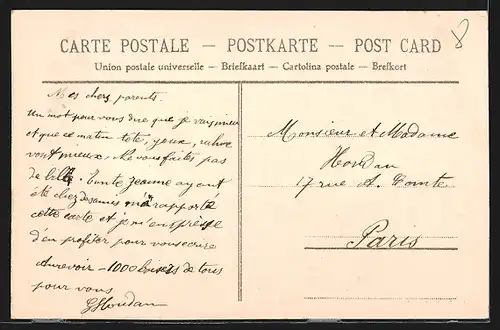 8
CARTE POSTALE — POSTKARTE — POST CARD
Union postale universelle — Briefkaart — Cartolina postale — Brefkort
Mes chers parents.
Un mot pour vous dire que je vais mieux
et que ce matin tête, yeux,
vont mieux. Ne vous faites pas
de bile. Tante Jeanne ayant
été chez des amies m'a rapporté
cette carte et je m'empresse
d'en profiter pour vous écrire
Au revoir - 1000 baisers de tous
pour vous
G Houdan
Monsieur et Madame
Houdan
17 rue A. Comte
Paris